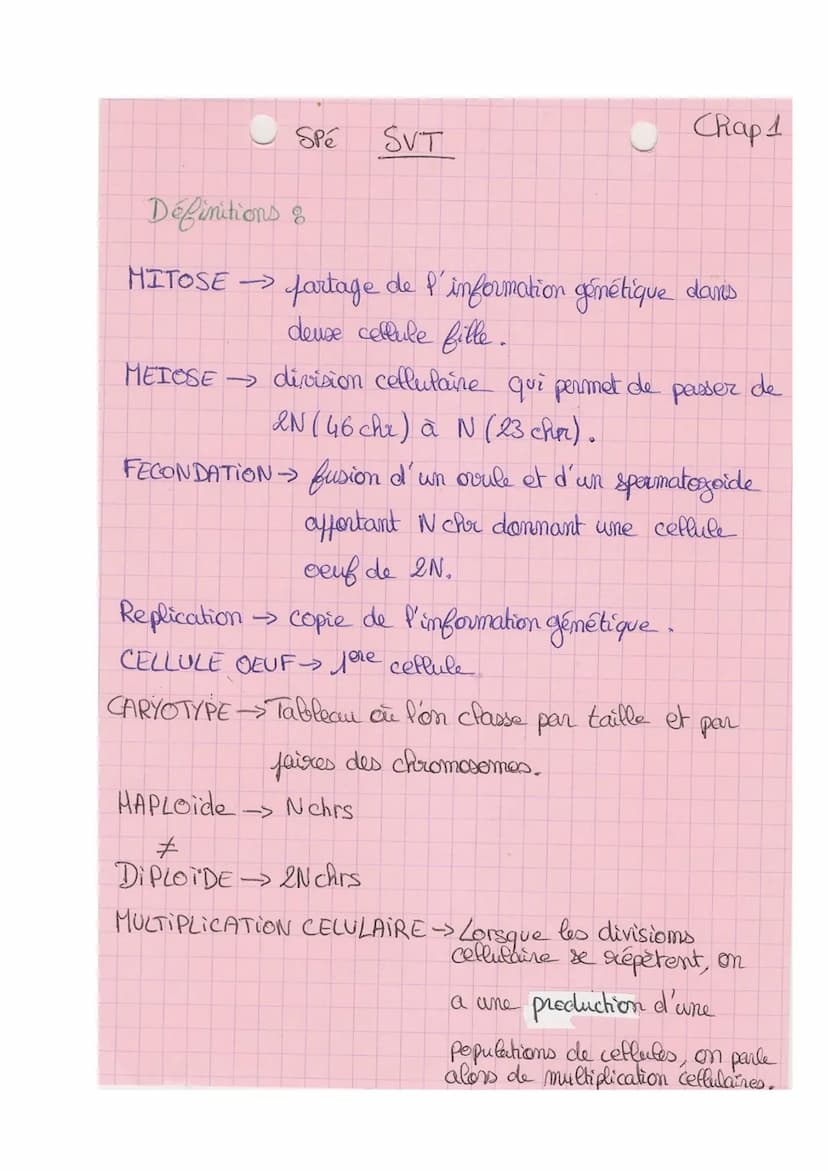 SPé SVT Chap 1
Définitions :
MITOSE → partage de l'information génétique dans
deux cellule fille.
MEIOSE → division cellulaire qui permet de passer de
2N (46 chr) à N (23 chr).
FECONDATION → fusion d'un ovule et d'un spermatozoide
apportant N chr donnant une cellule
oeuf de 2N.
Replication → copie de l'information génétique.
CELLULE OEUF → 1ere cellule
CARYOTYPE → Tableau où l'on classe par taille et par
paires des chromosomes.
HAPLOïde → N chrs
≠
DiPLOïDE → 2N chrs
MULTiPLiCATiON CELULAiRE → Lorsque les divisions
cellulaire se répètent, on
a une production d'une
populations de cellules, on parle
alors de multiplication cellulaires.